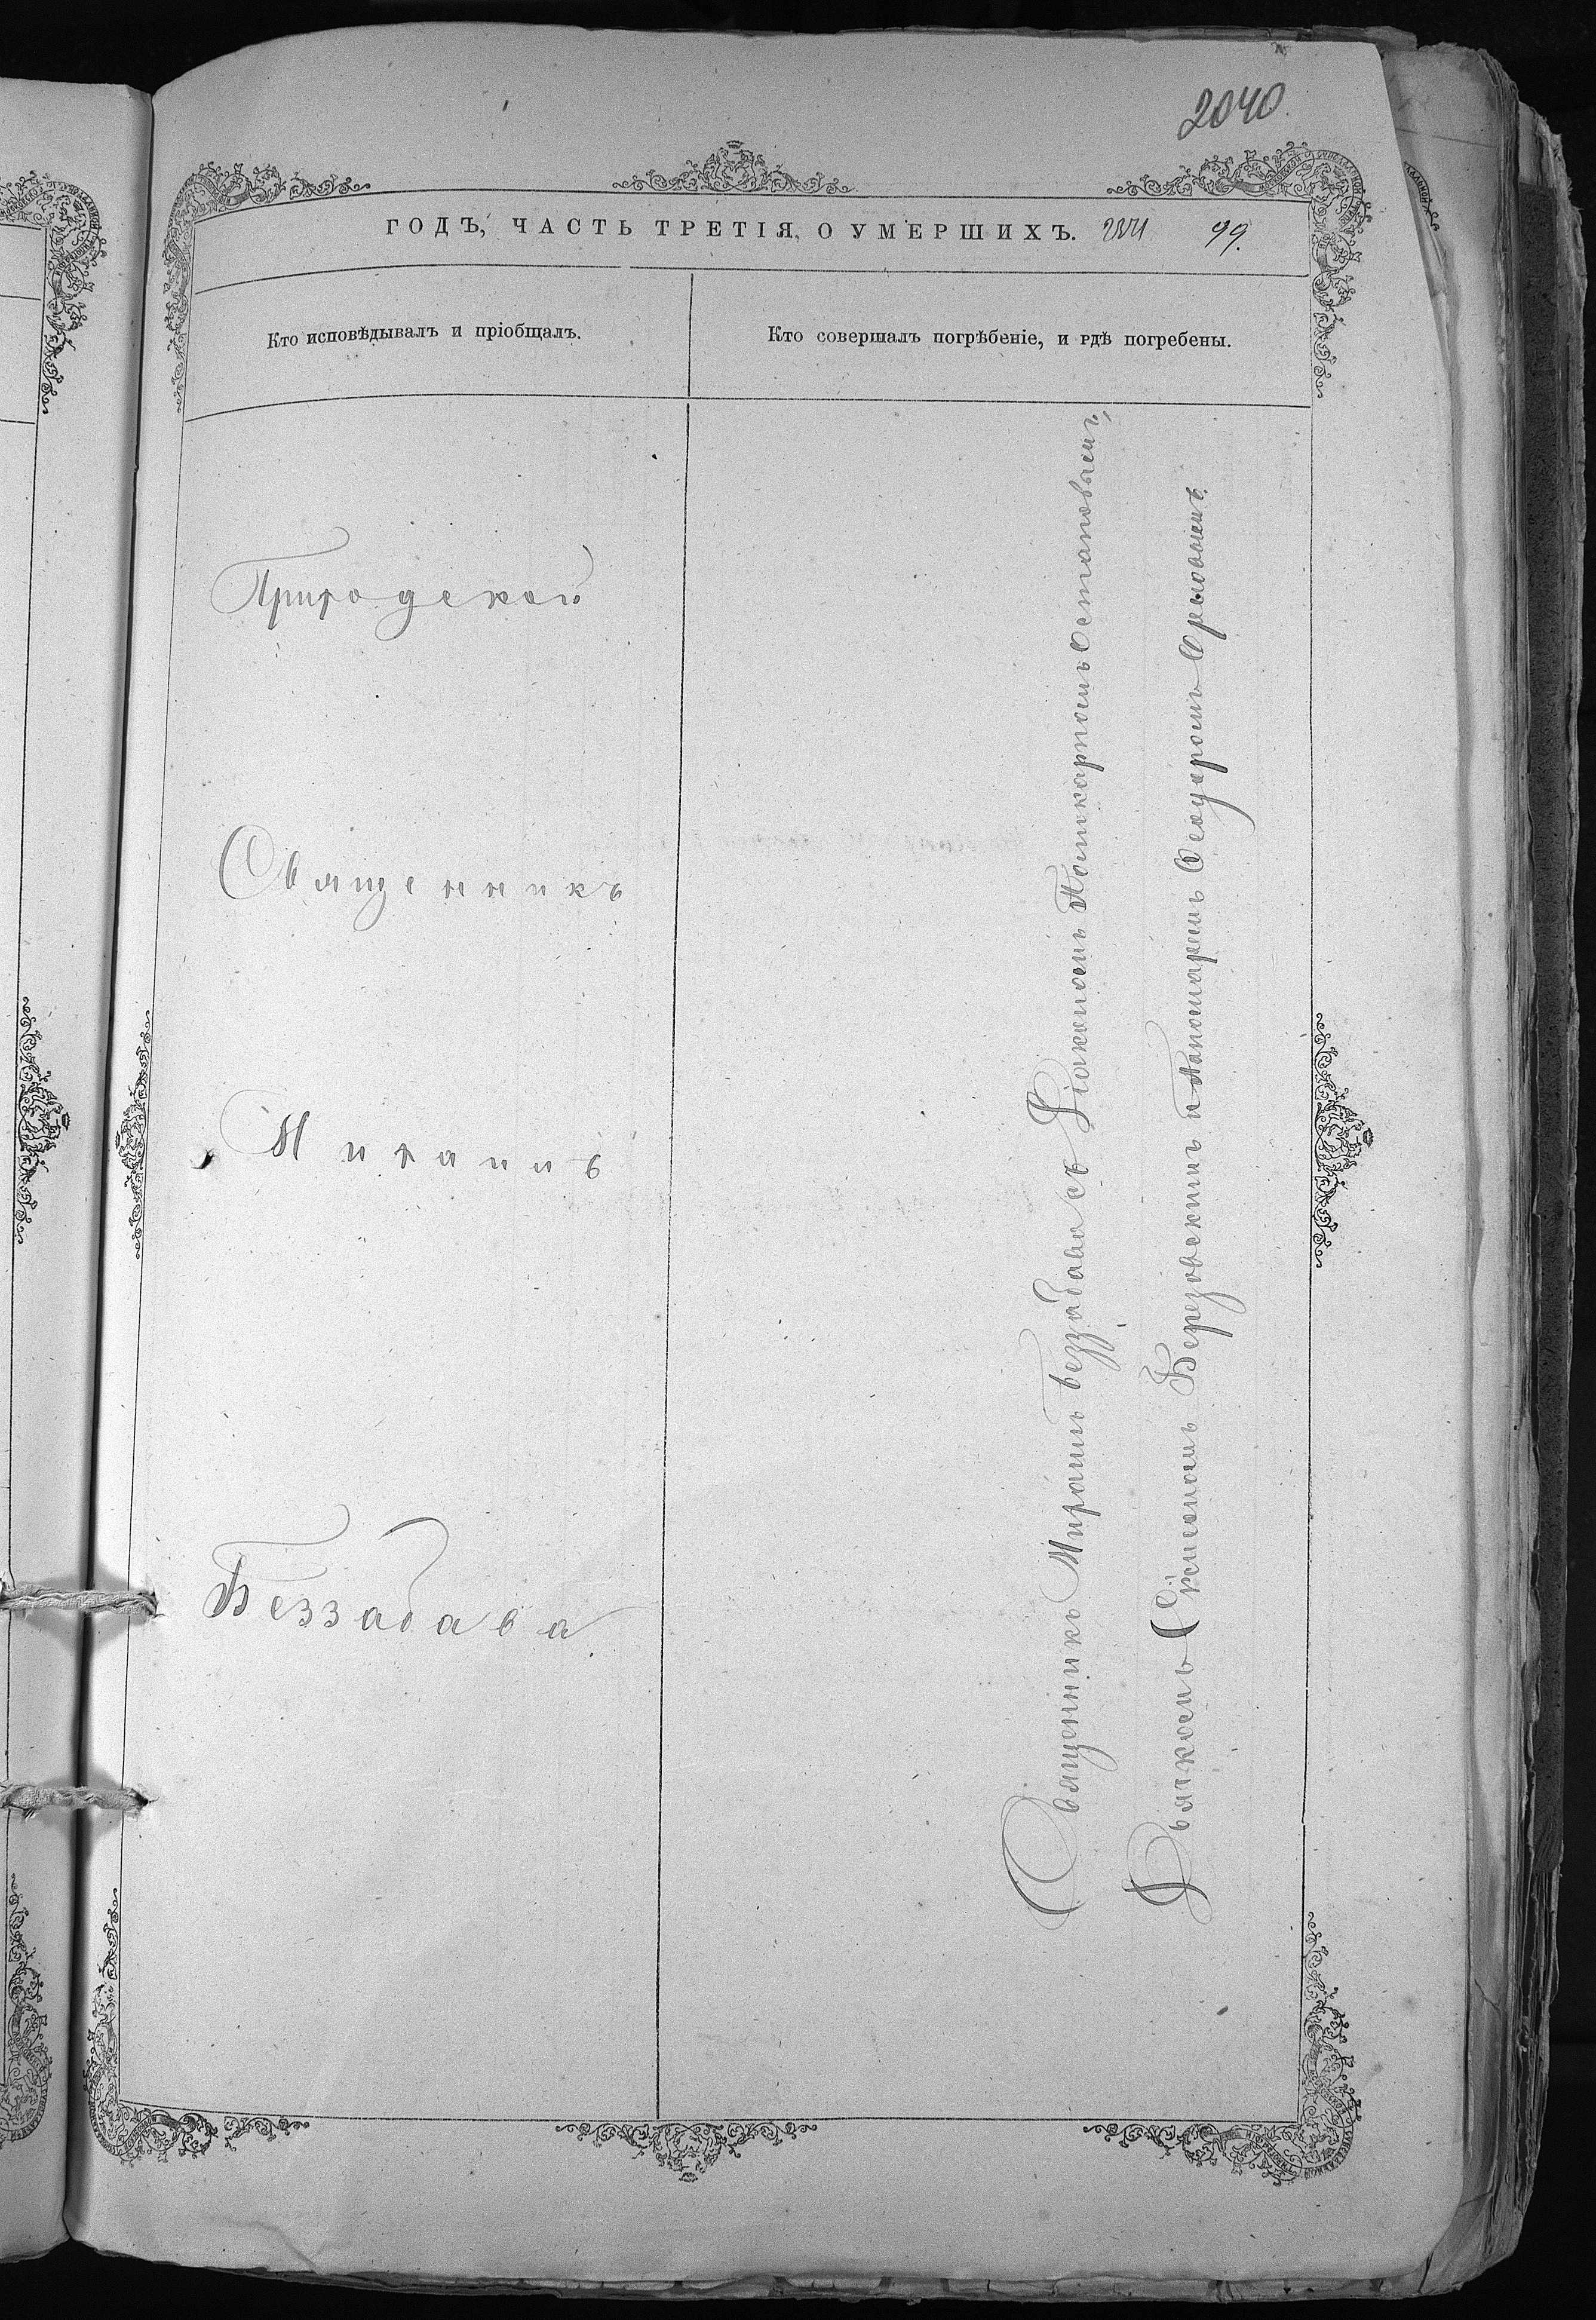 2040.
ГОДЪ, ЧАСТЬ ТРЕТІЯ, О УМЕРШИХЪ. 99.
Кто исповѣдывалъ и пріобщалъ.
Кто совершалъ погрѣбеніе, и гдѣ погребены.
Приходской
Священникъ
Миронъ
Беззабава
Священникъ Миронъ Беззабава съ Діакономъ Поликарпомъ Остаповымъ,
Дьячкомъ Симеономъ Березовскимъ и Пономаремъ Ѳеодоромъ